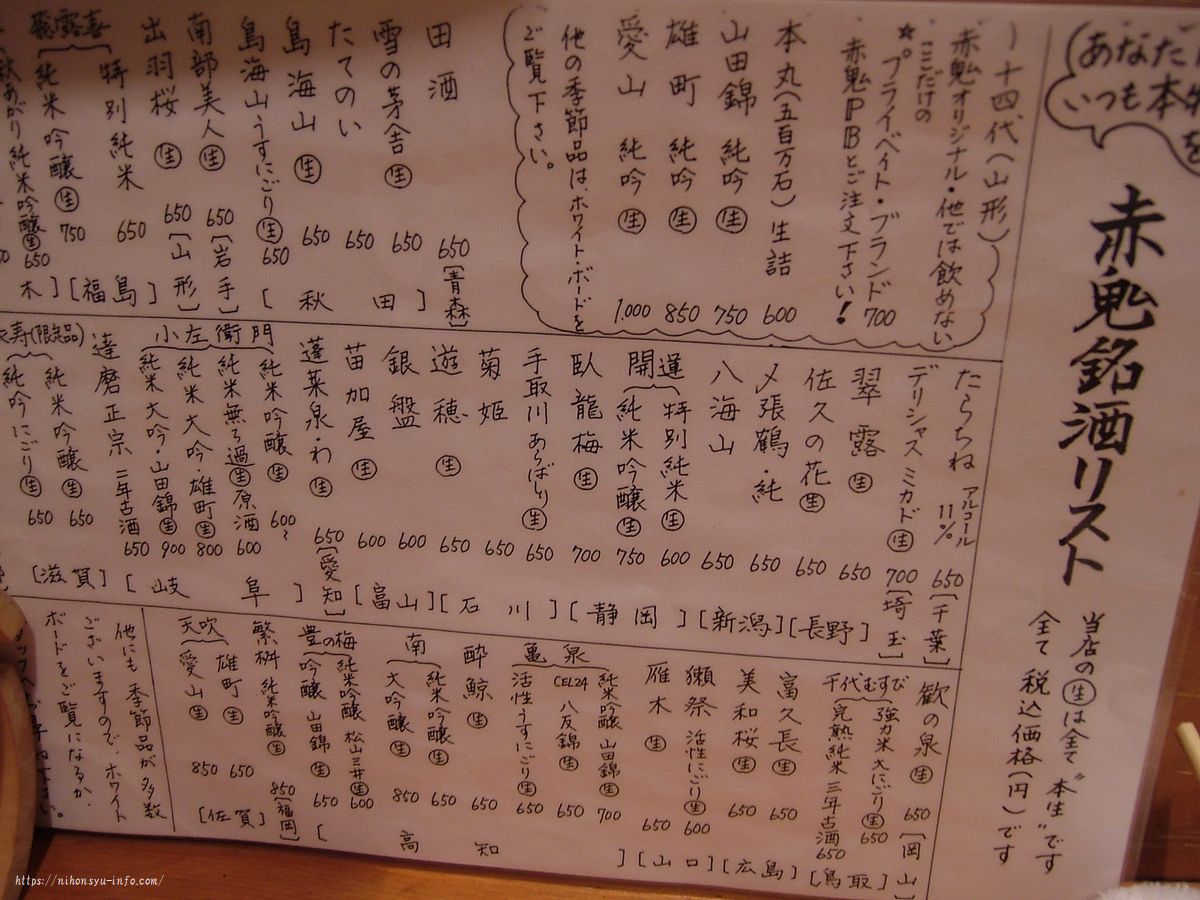 あなた
いつも本
を
赤鬼銘酒リスト
当店の生は全て"本生"です
全て 税込価格(円)です
十四代(山形)
赤鬼オリジナル・他では飲めない
ここだけの
☆プライベイト・ブランド700
赤鬼PBとご注文下さい!
本丸(五百万石)生詰 600
山田錦 純吟 生 750
雄町 純吟 生 850
愛山 純吟 生 1,000
他の季節品は、ホワイト・ボードを
ご覧下さい。
田酒 650 [青森]
雪の茅舎 生 650
たてのい 650
鳥海山 生 650
鳥海山うすにごり 生 650
[秋田]
南部美人 生 650 [岩手]
出羽桜 生 650 [山形]
飛露喜
特別純米 650
純米吟醸 生 750
[福島]
秋あがり純米吟醸 生 650
木]
たらちね アルコール11% 650 [千葉]
デリシャスミカド 生 700 [埼玉]
翠露 生 650
佐久の花 生 650
[長野]
〆張鶴・純 650
八海山 650
[新潟]
開運
特別純米 生 600
純米吟醸 生 750
臥龍梅 生 700
[静岡]
手取川あらばしり 生 650
菊姫 650
遊穂 生 650
[石川]
銀盤 600
苗加屋 生 600
[富山]
蓬莱泉・わ 生 650 [愛知]
小左衛門
純米吟醸 生 600〜
純米無ろ過生原酒 600
純米大吟・雄町 生 800
純米大吟・山田錦 生 900
達磨正宗 三年古酒 650
[岐阜]
寿(限定品)
純米吟醸 生 650
純吟にごり 生 650
[滋賀]
歓の泉 生 650 [岡山]
千代むすび
強力米大にごり 生 650
完熟純米 三年古酒 650
[鳥取]
富久長 生 650
美和桜 生 650
[広島]
獺祭 活性にごり 生 600
雁木 生 650
[山口]
亀泉
純米吟醸 山田錦 生 700
CEL24 八反錦 生 650
活性うすにごり 生 650
酔鯨 生 650
南
純米吟醸 生 650
大吟醸 生 850
豊の梅
純米吟醸 松山三井 生 600
吟醸 山田錦 生 650
[高知]
繁桝 純米吟醸 生 850 [福岡]
天吹
雄町 生 650
愛山 生 850
[佐賀]
他にも季節品が多数
ございますので、ホワイト
ボードをご覧になるか、
下さい。
https://nihonsyu-info.com/